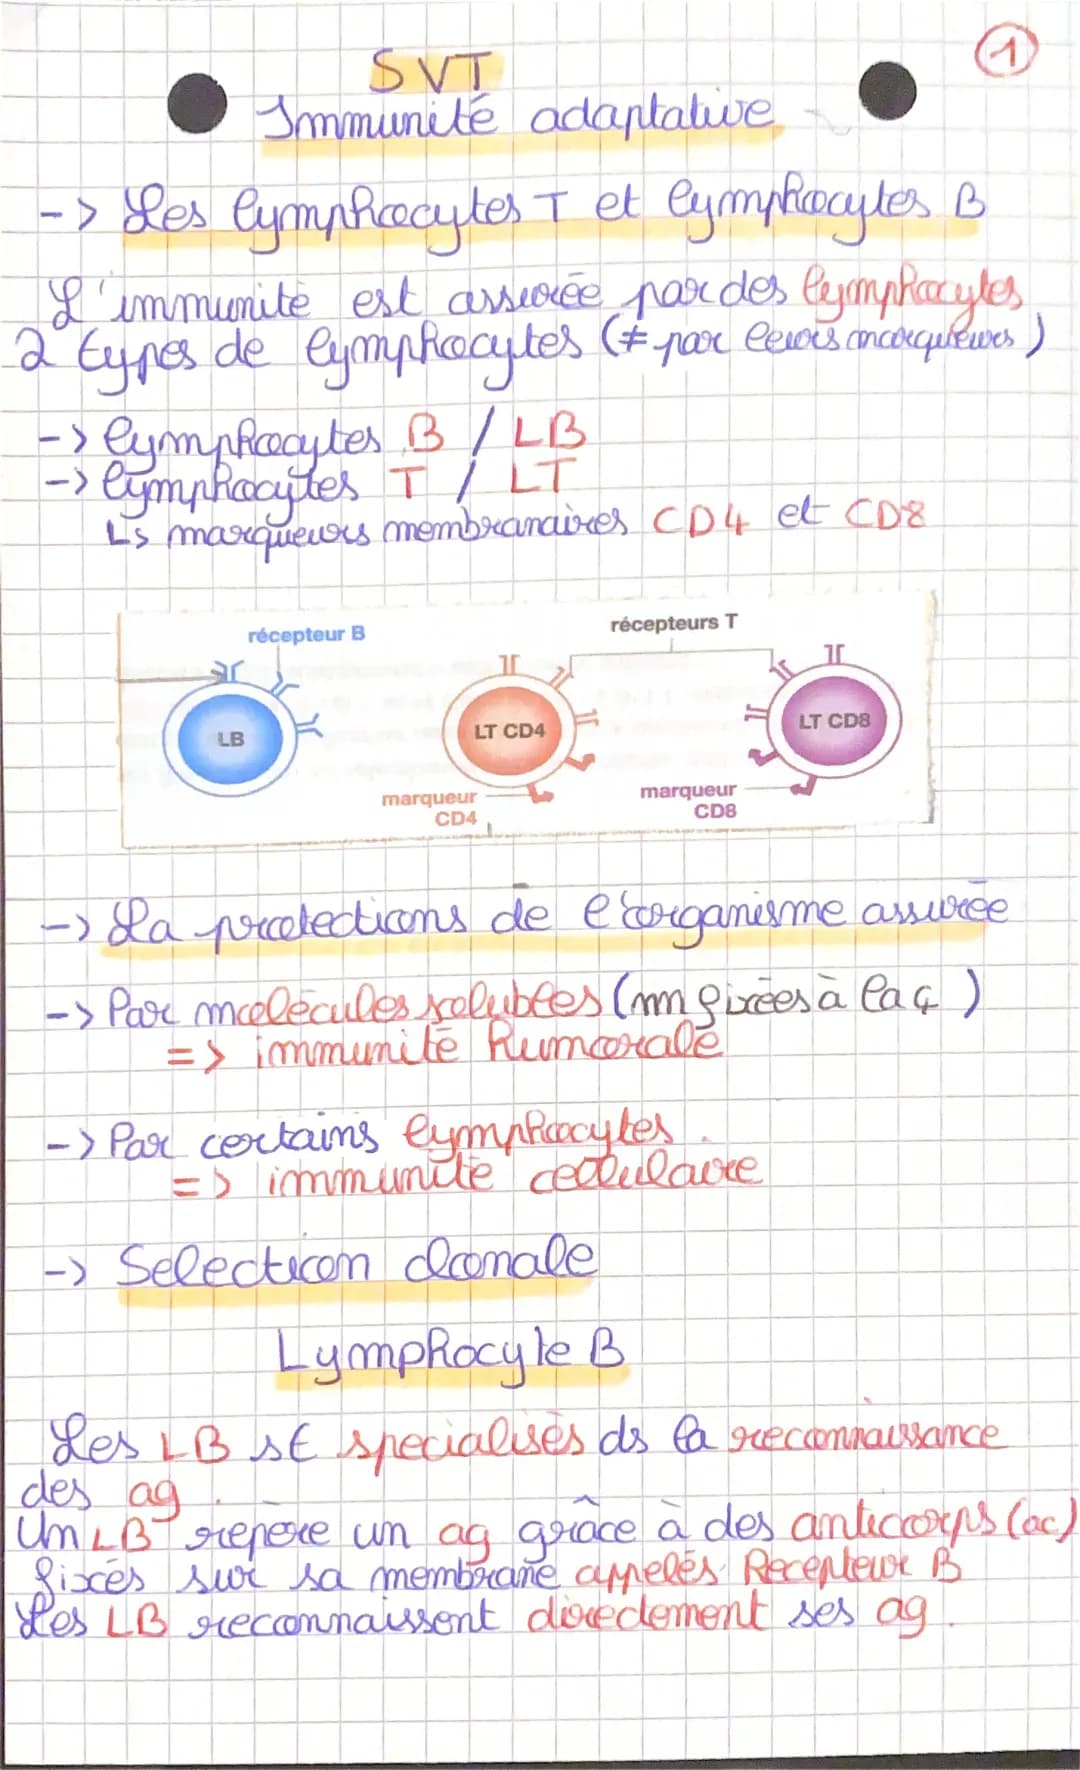 1
SVT
Immunité adaptative
-> Les lymphocytes T et lymphocytes B
L'immunité est assurée par des lymphocytes
2 types de lymphocytes (≠ par leurs marqueurs)
-> lymphocytes B / LB
-> lymphocytes T / LT
Ls marqueurs membranaires CD4 et CD8
récepteur B
récepteurs T
LB
LT CD4
LT CD8
marqueur
CD4
marqueur
CD8
-> La protections de l'organisme assurée
-> Par molécules solubles (nn fixées à la ç)
=> immunité humorale
-> Par certains lymphocytes.
=> immunité cellulaire
-> Selection clonale
Lymphocyte B
Les LB st specialisés ds la reconnaissance
des ag.
Un LB repère un ag grâce à des anticorps (ac)
fixés sur sa membrane appelés Recepteur B
Les LB reconnaissent directement ses ag.